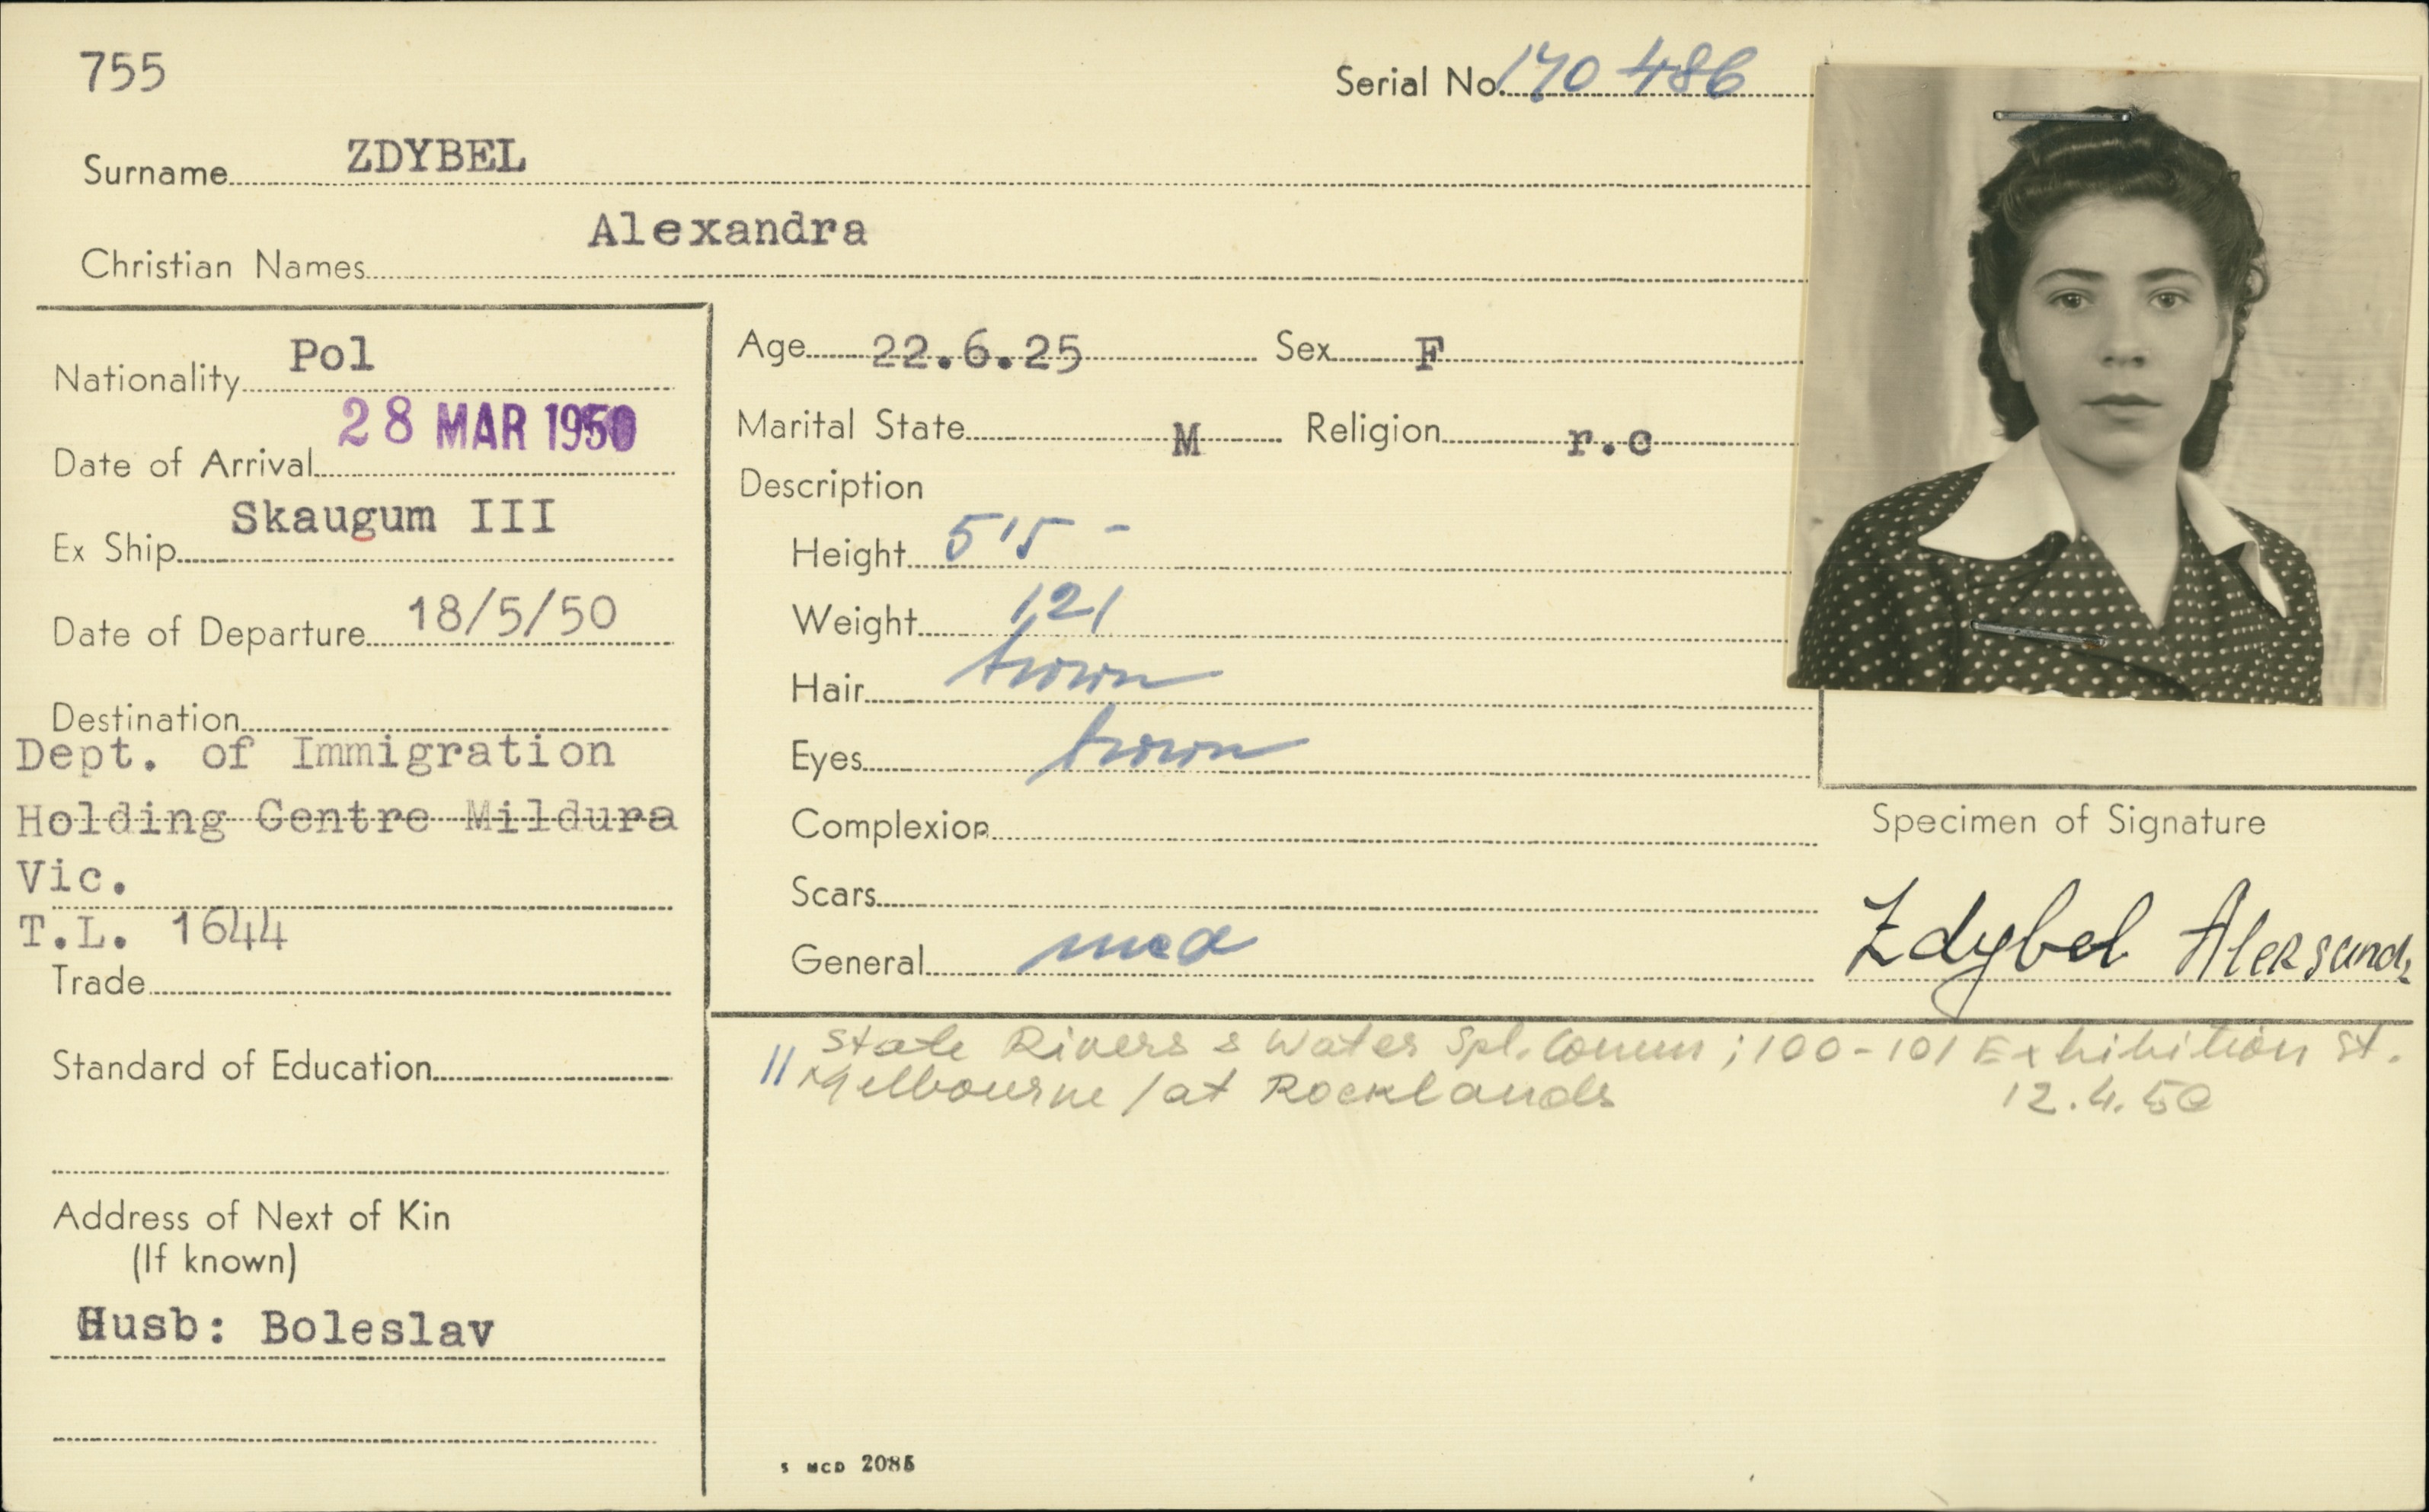 755
Serial No. 170 486
Surname ZDYBEL
Christian Names Alexandra
Nationality Pol
Date of Arrival 28 MAR 1950
Ex Ship Skaugum III
Date of Departure 18/5/50
Destination
Dept. of Immigration
Holding Centre Mildura
Vic.
T.L. 1644
Trade
Standard of Education
Address of Next of Kin
(If known)
Husb: Boleslav
Age 22.6.25 Sex F
Marital State M Religion r.c
Description
Height 5'5 -
Weight 121
Hair brown
Eyes brown
Complexion
Scars
General med
Specimen of Signature
Zdybel Aleksand
11 State Rivers & Water Spl. Comm; 100-101 Exhibition St.
Melbourne / at Rocklands 12.4.50
S MCD 2085